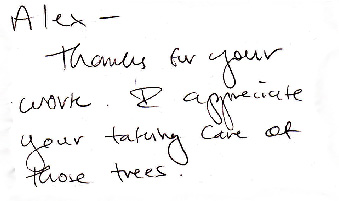 Alex -
Thanks for your
work. I appreciate
your taking care of
those trees.